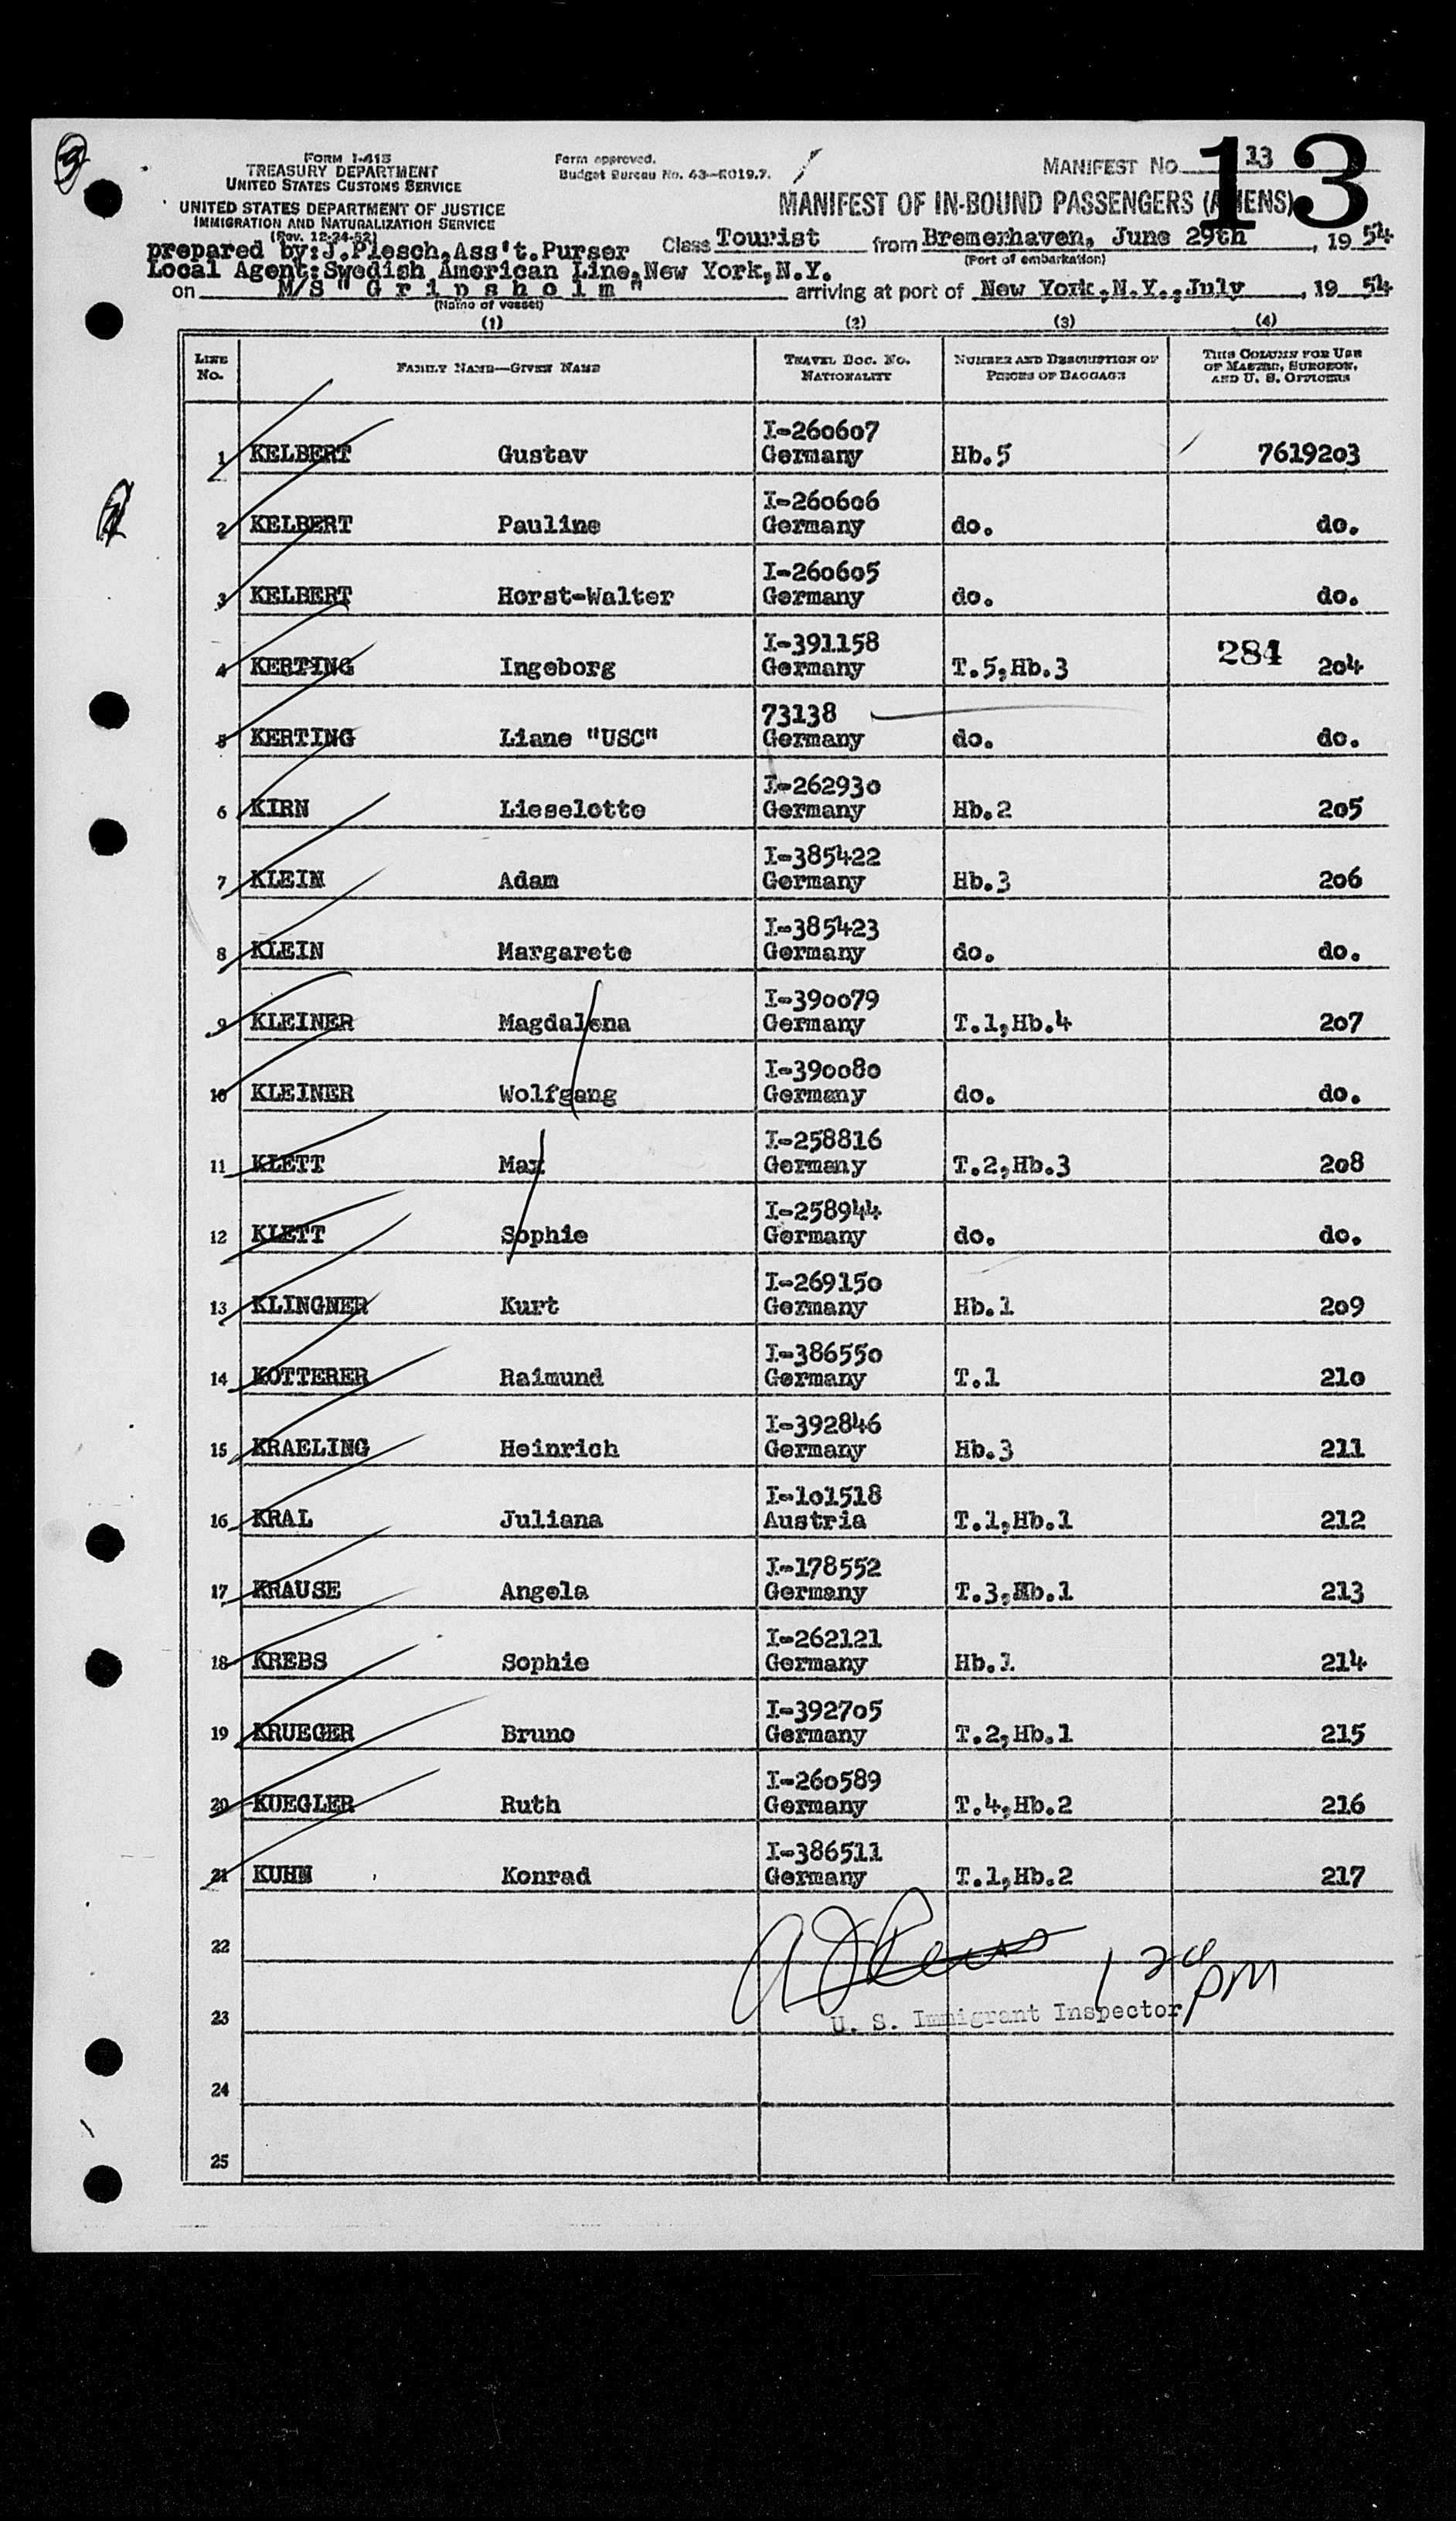 FORM I-415
TREASURY DEPARTMENT
UNITED STATES CUSTOMS SERVICE
UNITED STATES DEPARTMENT OF JUSTICE
IMMIGRATION AND NATURALIZATION SERVICE
(Rev. 12-24-52)
Form approved.
Budget Bureau No. 43-R019.7.
MANIFEST NO. 13
13
MANIFEST OF IN-BOUND PASSENGERS (ALIENS)
prepared by:J.Plesch,Ass't.Purser Class Tourist from Bremerhaven, June 29th, 1954
(Port of embarkation)
Local Agent:Swedish American Line,New York,N.Y.
on M/S " G r i p s h o l m " arriving at port of New York,N.Y.,July, 1954
(Name of vessel)
(1) (2) (3) (4)
LINE NO. FAMILY NAME—GIVEN NAME TRAVEL DOC. NO. NATIONALITY NUMBER AND DESCRIPTION OF PIECES OF BAGGAGE THIS COLUMN FOR USE OF MASTER, SURGEON, AND U. S. OFFICERS
I-260607
1 KELBERT Gustav Germany Hb.5 7619203
I-260606
2 KELBERT Pauline Germany do. do.
I-260605
3 KELBERT Horst-Walter Germany do. do.
I-391158 284
4 KERTING Ingeborg Germany T.5,Hb.3 204
73138
5 KERTING Liane "USC" Germany do. do.
I-262930
6 KIRN Lieselotte Germany Hb.2 205
I-385422
7 KLEIN Adam Germany Hb.3 206
I-385423
8 KLEIN Margarete Germany do. do.
I-390079
9 KLEINER Magdalena Germany T.1,Hb.4 207
I-390080
10 KLEINER Wolfgang Germany do. do.
I-258816
11 KLETT Max Germany T.2,Hb.3 208
I-258944
12 KLETT Sophie Germany do. do.
I-269150
13 KLINGNER Kurt Germany Hb.1 209
I-386550
14 KOTTERER Raimund Germany T.1 210
I-392846
15 KRAELING Heinrich Germany Hb.3 211
I-101518
16 KRAL Juliana Austria T.1,Hb.1 212
I-178552
17 KRAUSE Angela Germany T.3,Hb.1 213
I-262121
18 KREBS Sophie Germany Hb.1 214
I-392705
19 KRUEGER Bruno Germany T.2,Hb.1 215
I-260589
20 KUEGLER Ruth Germany T.4,Hb.2 216
I-386511
21 KUHN Konrad Germany T.1,Hb.2 217
22
1 20 PM
23 U. S. Immigrant Inspector
24
25